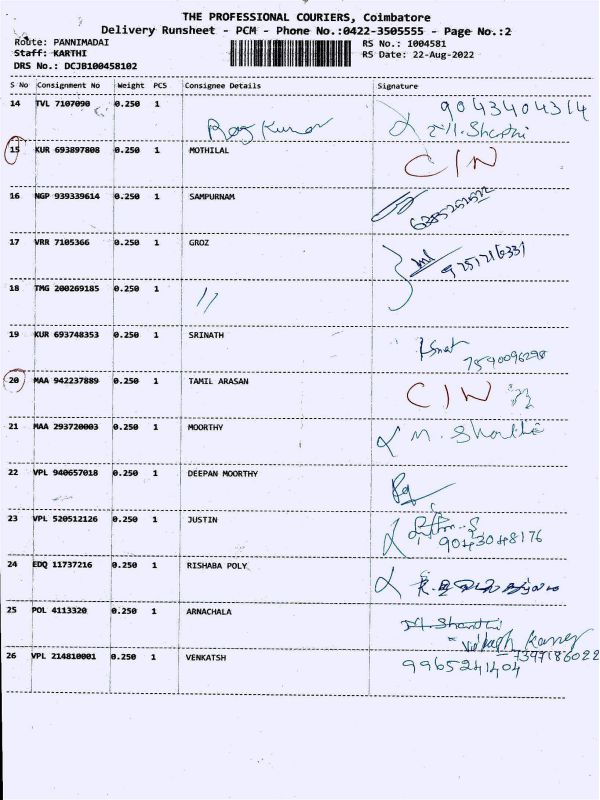 THE PROFESSIONAL COURIERS, Coimbatore
Delivery Runsheet - PCM - Phone No.:0422-3505555 - Page No.:2
Route: PANNIMADAI
Staff: KARTHI
DRS No.: DCJB100458102
RS No.: 1004581
RS Date: 22-Aug-2022
S No Consignment No Weight PCS Consignee Details Signature
14 TVL 7107090 0.250 1 Raj Kumar 9043404314
15 KUR 693897808 0.250 1 MOTHILAL C/N
16 NGP 939339614 0.250 1 SAMPURNAM
17 VRR 7105366 0.250 1 GROZ
18 TMG 200269185 0.250 1 //
19 KUR 693748353 0.250 1 SRINATH 7540096298
20 MAA 942237889 0.250 1 TAMIL ARASAN C/N
21 MAA 293720003 0.250 1 MOORTHY
22 VPL 940657018 0.250 1 DEEPAN MOORTHY
23 VPL 520512126 0.250 1 JUSTIN 9043048176
24 EDQ 11737216 0.250 1 RISHABA POLY
25 POL 4113320 0.250 1 ARNACHALA M. Shanthi
7397186022
26 VPL 214810001 0.250 1 VENKATSH 9965241404